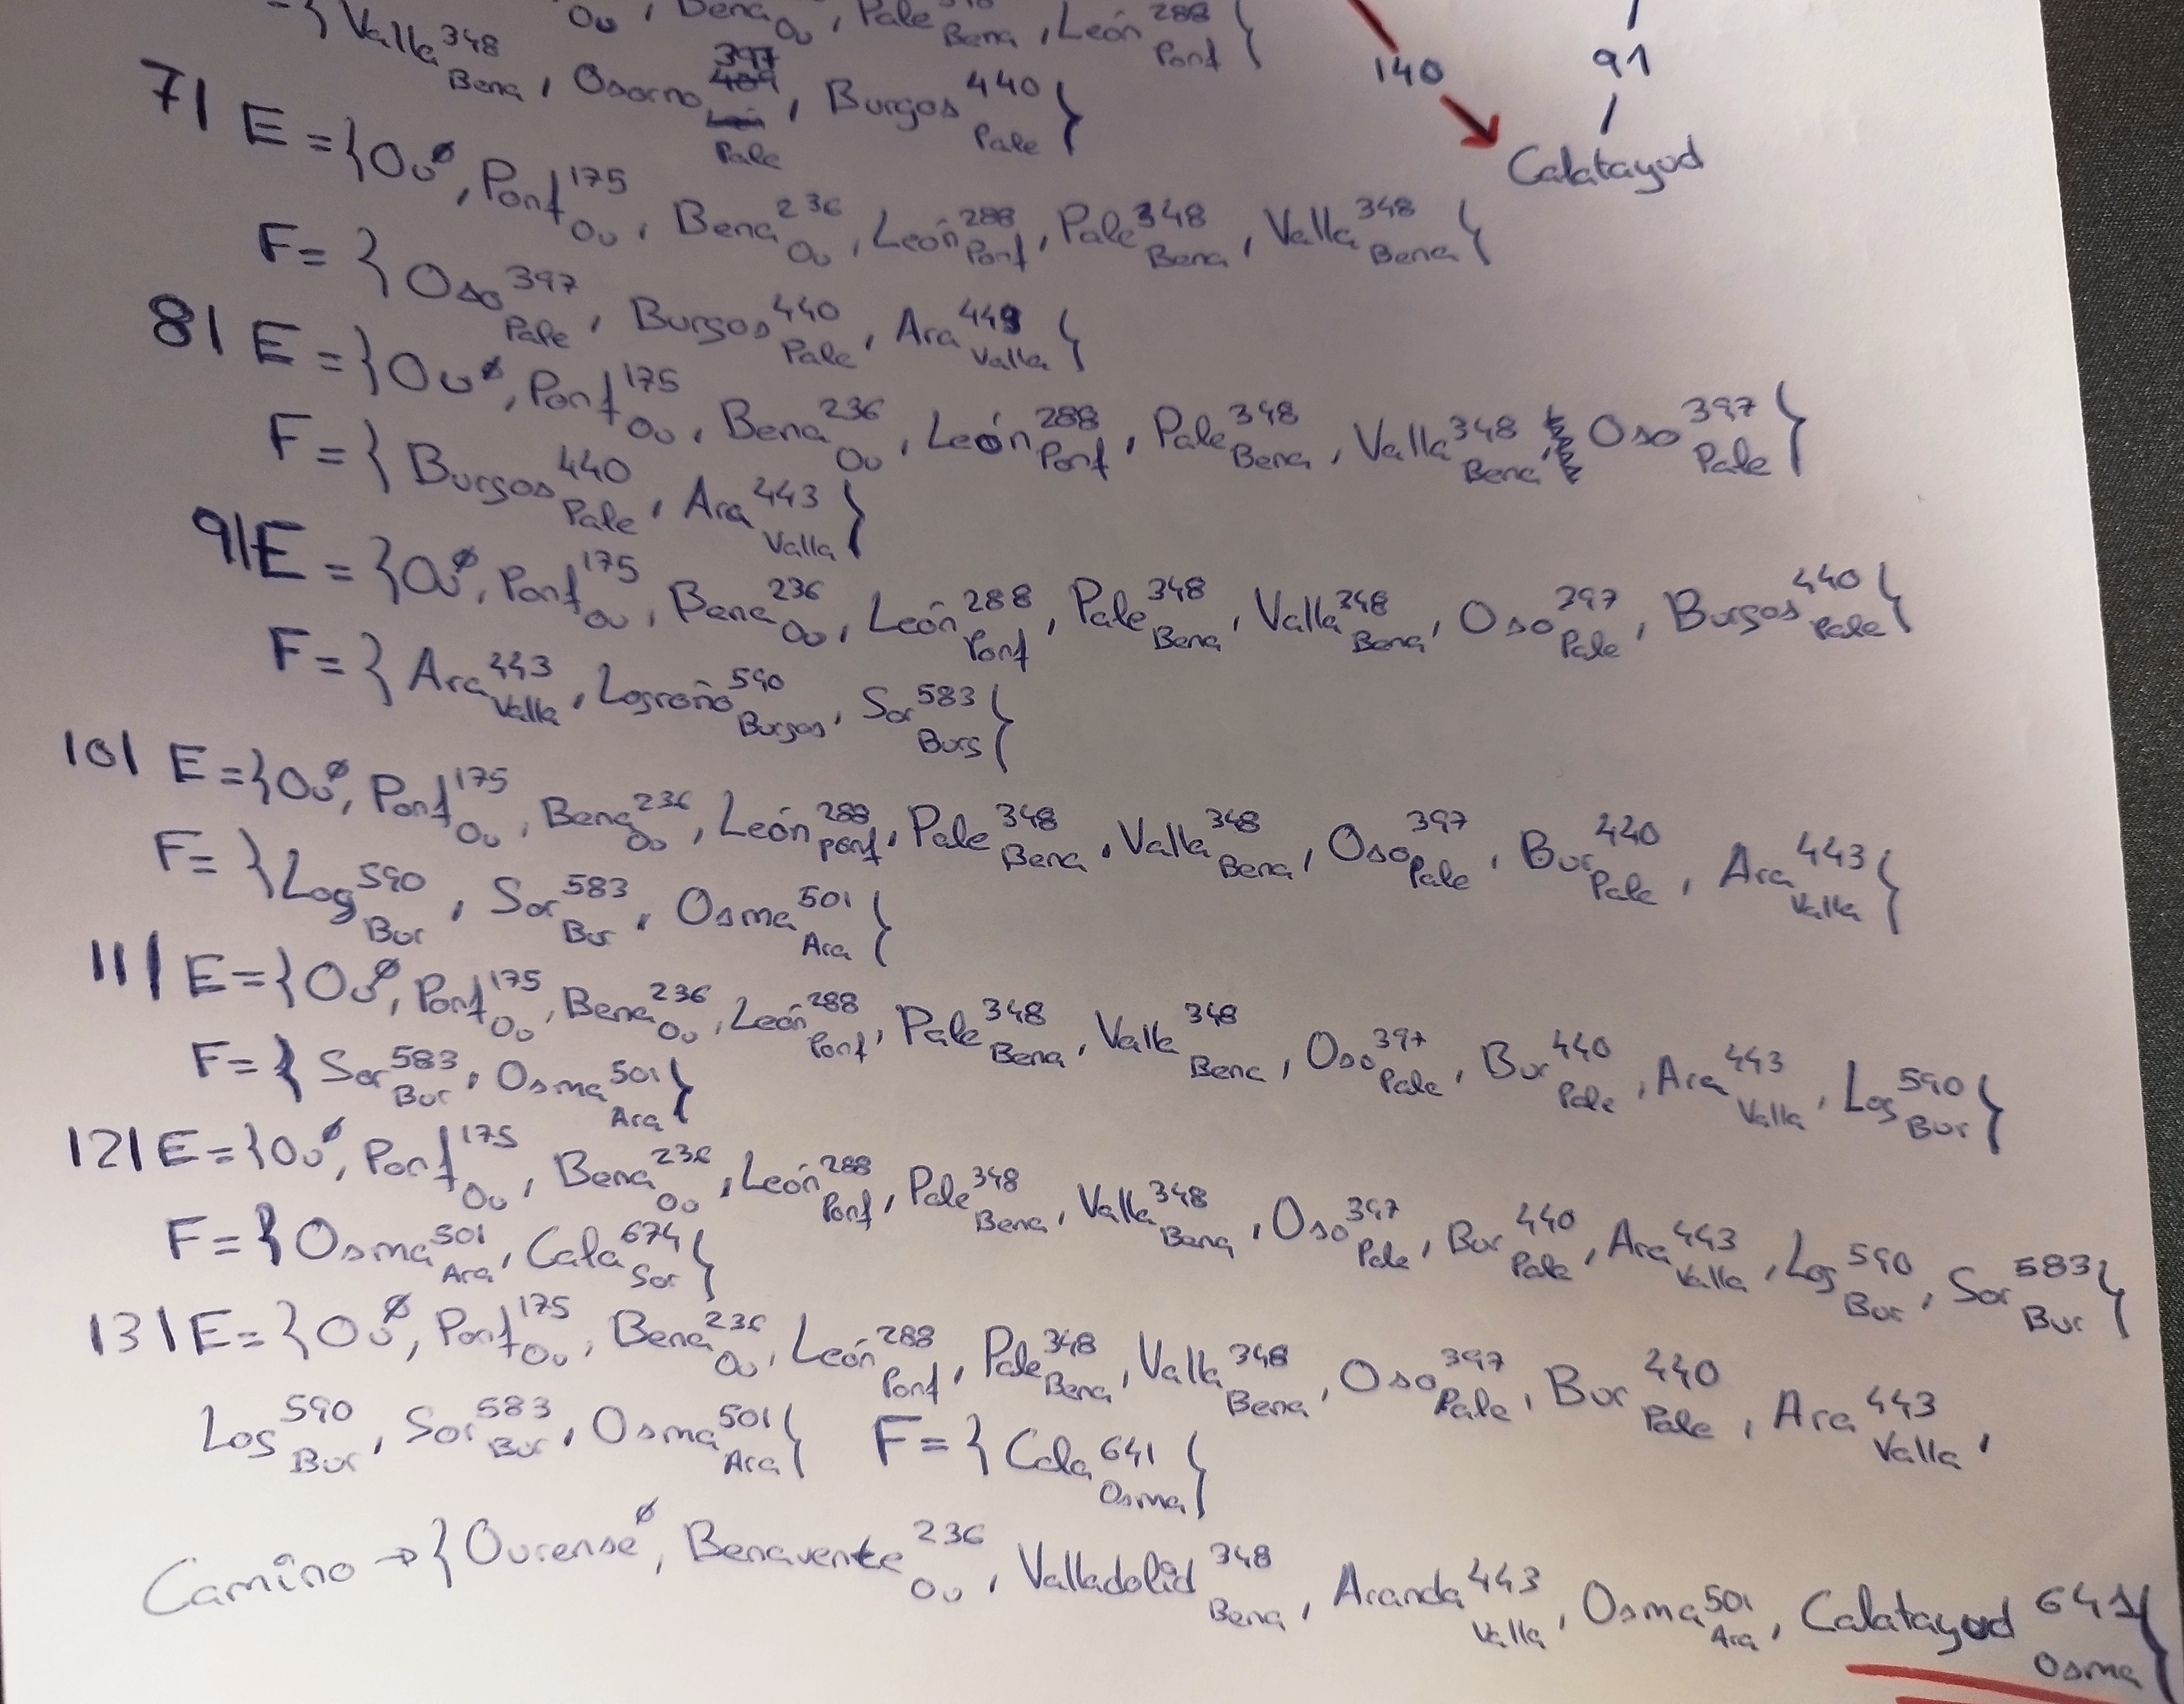 ={Valla 348 Bena, Osorno 397 Pale, Burgos 440 Pale}
Ou, Bena Ou, Pale Bena, León 288 Pont}
140
91
Calatayud
7) E={Ou ø, Ponf 175 Ou, Bena 236 Ou, León 288 Ponf, Pale 348 Bena, Valla 348 Bena}
F={Oso 397 Pale, Burgos 440 Pale, Ara 443 Valla}
8) E={Ou ø, Ponf 175 Ou, Bena 236 Ou, León 288 Ponf, Pale 348 Bena, Valla 348 Bena, Oso 397 Pale}
F={Burgos 440 Pale, Ara 443 Valla}
9) E={Ou ø, Ponf 175 Ou, Bena 236 Ou, León 288 Ponf, Pale 348 Bena, Valla 348 Bena, Oso 397 Pale, Burgos 440 Pale}
F={Ara 443 Valla, Logroño 590 Burgos, Sor 583 Burg}
10) E={Ou ø, Ponf 175 Ou, Bena 236 Ou, León 288 Ponf, Pale 348 Bena, Valla 348 Bena, Oso 397 Pale, Bur 440 Pale, Ara 443 Valla}
F={Log 590 Bur, Sor 583 Bur, Osma 501 Ara}
11) E={Ou ø, Ponf 175 Ou, Bena 236 Ou, León 288 Ponf, Pale 348 Bena, Valla 348 Bena, Oso 397 Pale, Bur 440 Pale, Ara 443 Valla, Log 590 Bur}
F={Sor 583 Bur, Osma 501 Ara}
12) E={Ou ø, Ponf 175 Ou, Bena 236 Ou, León 288 Ponf, Pale 348 Bena, Valla 348 Bena, Oso 397 Pale, Bur 440 Pale, Ara 443 Valla, Log 590 Bur, Sor 583 Bur}
F={Osma 501 Ara, Cala 674 Sor}
13) E={Ou ø, Ponf 175 Ou, Bena 236 Ou, León 288 Ponf, Pale 348 Bena, Valla 348 Bena, Oso 397 Pale, Bur 440 Pale, Ara 443 Valla,
Log 590 Bur, Sor 583 Bur, Osma 501 Ara} F={Cala 641 Osma}
Camino → {Ourense ø, Benavente 236 Ou, Valladolid 348 Bena, Aranda 443 Valla, Osma 501 Ara, Calatayud 641 Osma}